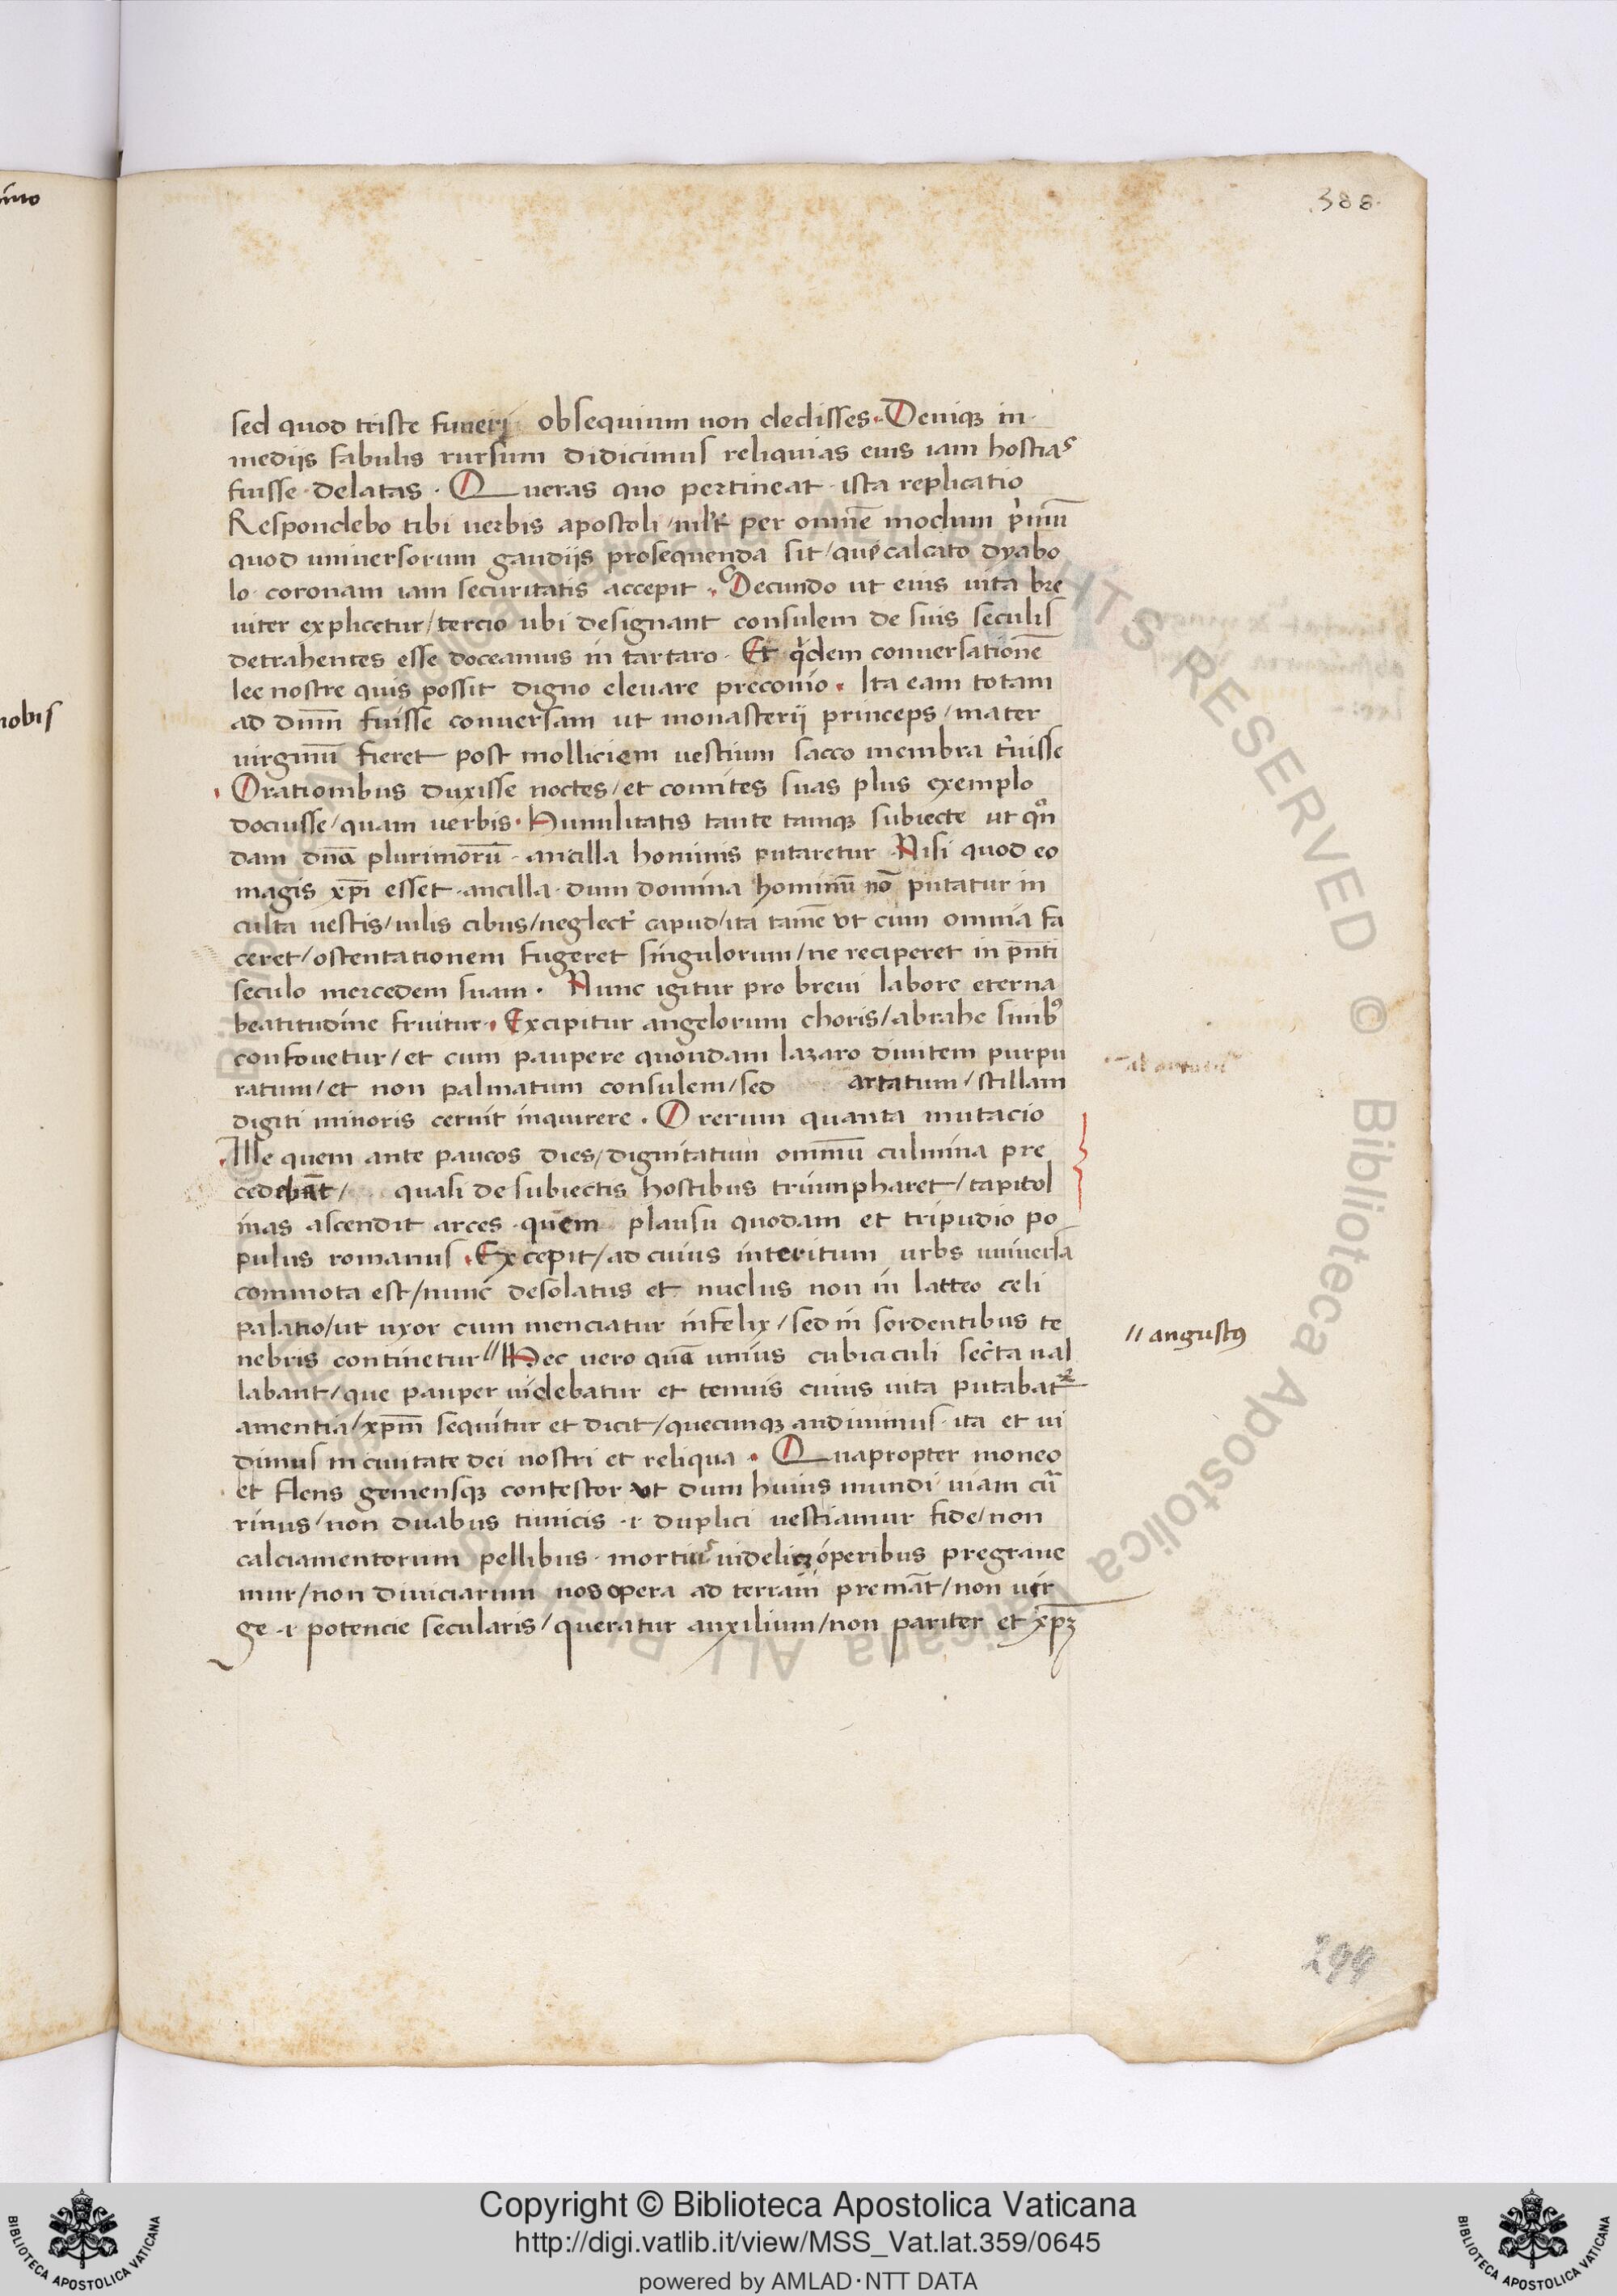 .388.
sed quod triste funeri obsequium non dedisses. Deniqꝫ in
mediis fabulis rursum didicimus reliquias eius iam hostias
fuisse delatas. Queras quo pertineat ista replicatio
Respondebo tibi uerbis apostoli per omnē modum
quod uniuersorum gaudiis prosequenda sit / que calcato dyabo
lo coronam iam securitatis accepit. Secundo ut eius uita bre
uiter explicetur / tercio ubi designant consulem de suis seculis
detrahentes esse doceamus in tartaro. Et qͥdem conuersationē
lee nostre quis possit digno eleuare preconio. Ita eam totam
ad dn̄m fuisse conuersam ut monasterij princeps / mater
uirginū fieret post molliciem uestium sacco membra tͥuisse
Orationibus duxisse noctes / et comites suas plus exemplo
docuisse / quam uerbis. Humilitatis tante tamqꝫ subiecte ut qn̄
dam dn̄a plurimorū ancilla hominis putaretur. Nisi quod eo
magis xp̄i esset ancilla dum domina hominū nō putatur in
culta uestis / uilis cibus / neglectͫ capud / ita tamē ut cum omnia fa
ceret / ostentationem fugeret singulorum / ne reciperet in pn̄ti
seculo mercedem suam. Nunc igitur pro breui labore eterna
beatitudine fruitur. Excipitur angelorum choris / abrahe sinibꝰ
confouetur / et cum paupere quondam lazaro diuitem purpu
ratum / et non palmatum consulem / sed artatum / stillam
digiti minoris cernit inquirere. O rerum quanta mutacio
Ille quem ante paucos dies / dignitatum omniū culmina pre
cedebāt / quasi de subiectis hostibus triumpharet / capitol
inas ascendit arces quem plausu quodam et tripudio po
pulus romanus. Excepit / ad cuius interitum urbs uniuersa
commota est / nunc desolatus et nudus non in latteo celi
palatio / ut uxor cum menciatur infelix / sed in sordentibus te
nebris continetur // Hec uero quā unius cubiculi secͬta ual
// angustꝰ
labant / que pauper uidebatur et tenuis cuius uita putabatͬ
amentia / xp̄m sequitur et dicit / quecunqꝫ audiuimus ita et ui
dimus in ciuitate dei nostri et reliqua. Quapropter moneo
et flens gemensqꝫ contestor ut dum huius mundi uiam cū
rimus / non duabus tunicis .i. duplici uestiamur fide / non
calciamentorum pellibus mortuis uidelicꝫ operibus pregraue
mur / non diuiciarum nos opera ad terram premāt / non uir
ge .i. potencie secularis / queratur auxilium / non pariter et xp̄ꝫ
244
nobis
Copyright © Biblioteca Apostolica Vaticana
http://digi.vatlib.it/view/MSS_Vat.lat.359/0645
powered by AMLAD·NTT DATA
BIBLIOTECA APOSTOLICA VATICANA
BIBLIOTECA APOSTOLICA VATICANA